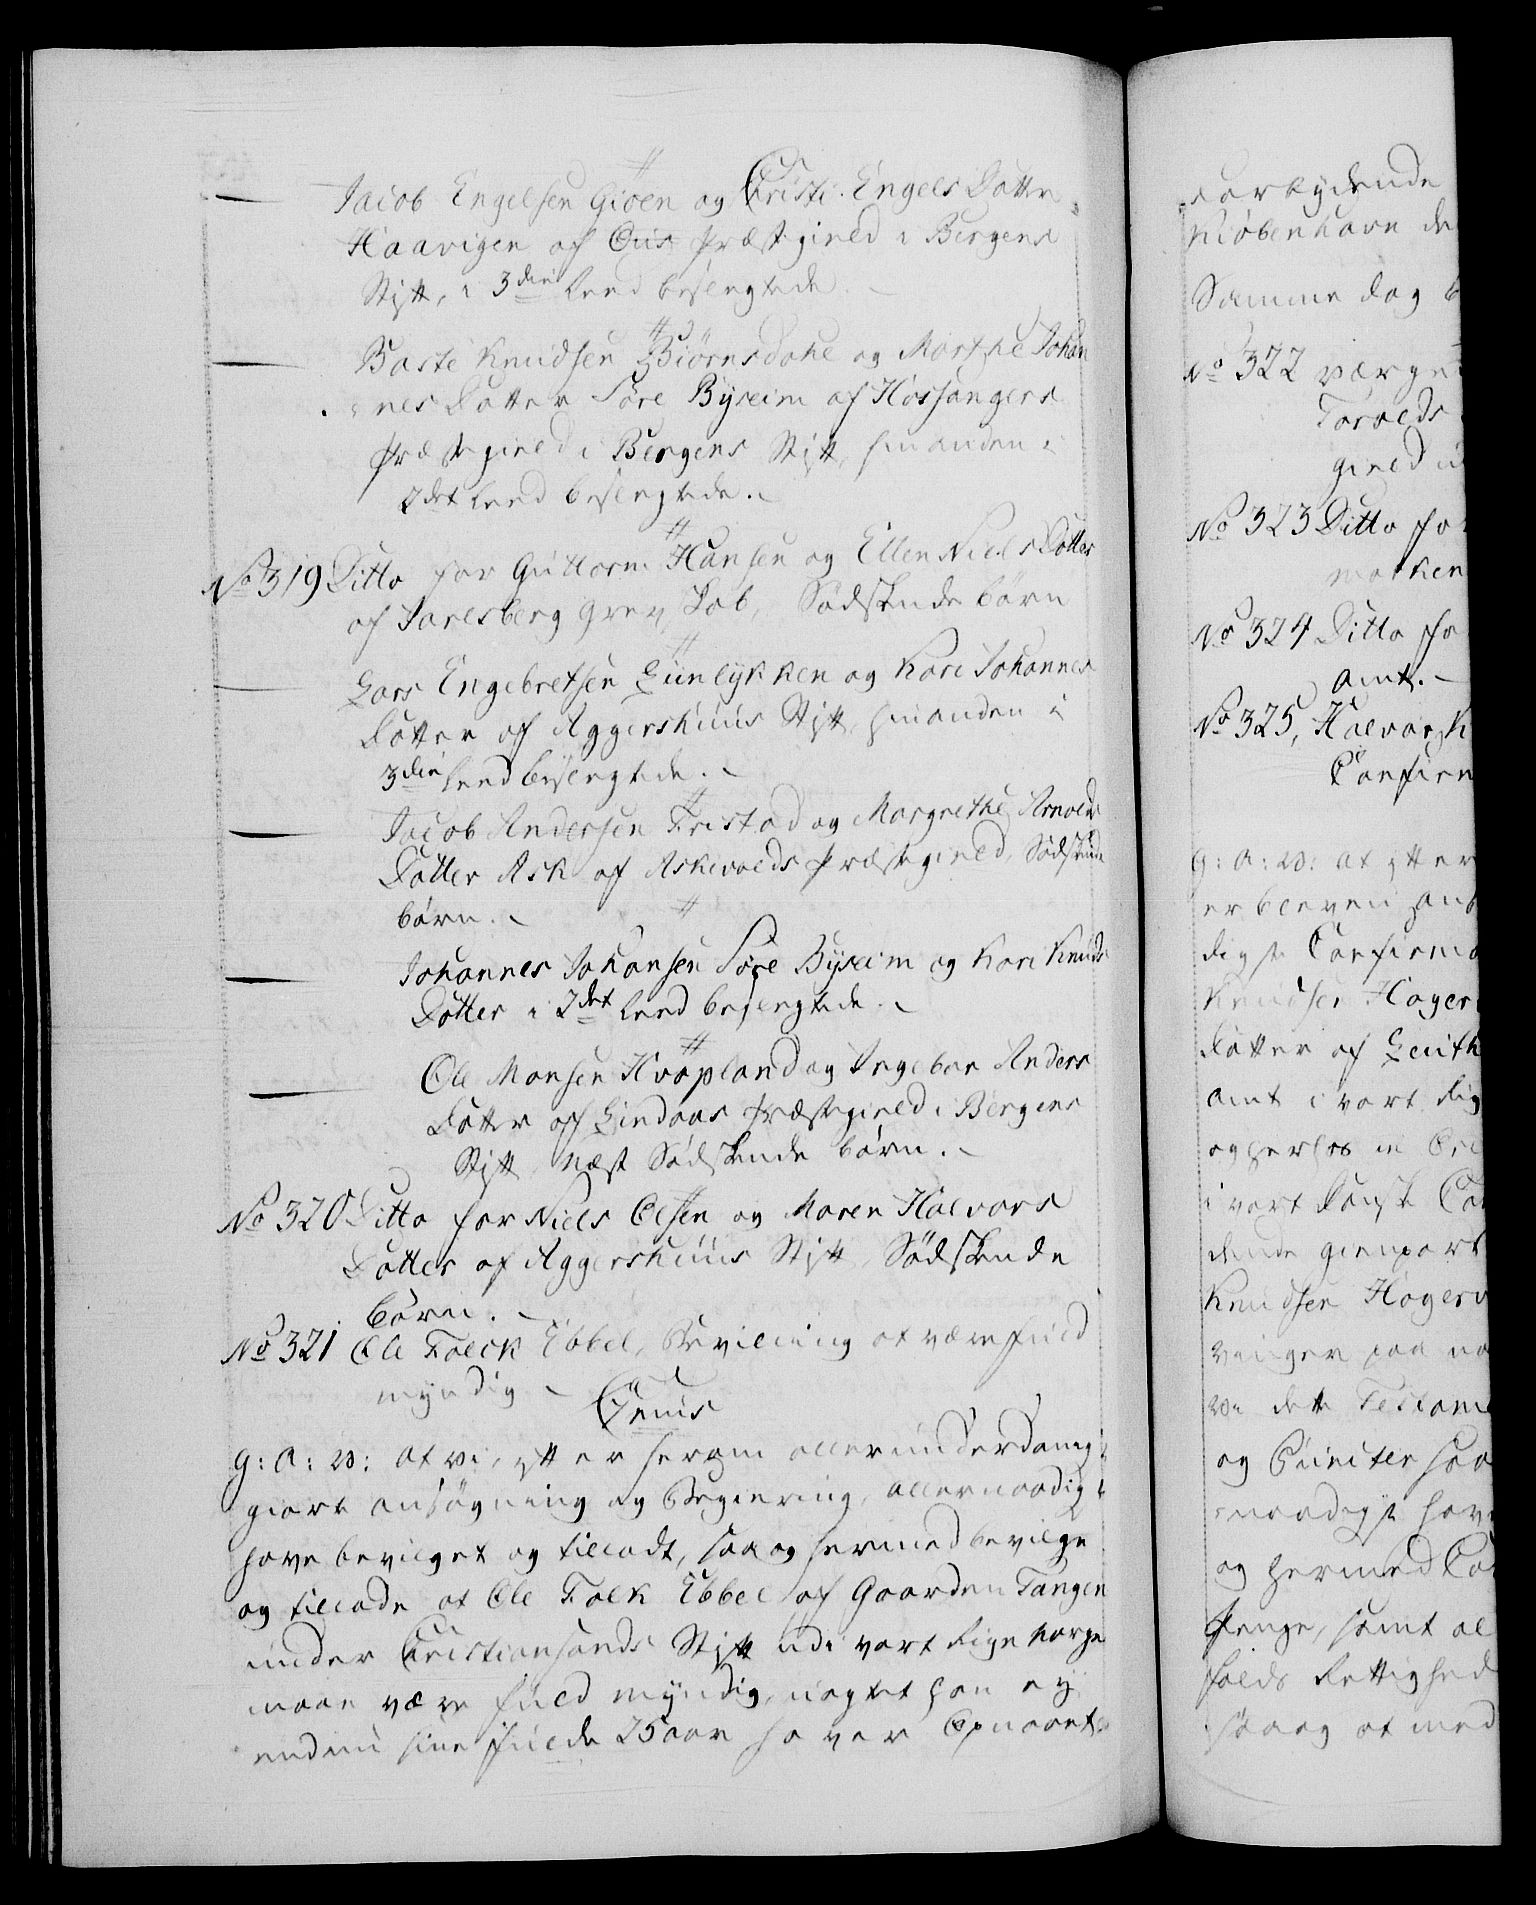 Jacob Engelsen Gioen og Christi Engels Datter
Haavigen af Ous Præstegield i Bergens
Stift, i 3die Leed besvogrede.
Baste Knudsen Biørnsdahl og Marthe Johan
nes Datter Søre Byseim af Hosangers
Præstegield i Bergens Stift, hinanden i
2det Leed besvogrede.
No 319 Ditto for Guttorm Hansen og Ellen Niels Datter
af Jarlsberg Grevskab, Sødskende børn
Lars Engebretsen Liunlykken og Kari Johannes
Datter af Aggershuus Stift, hinanden i
3die Leed besvogrede.
Jacob Andersen Fristad og Margrethe Arnolds
Datter Ask af Askevolds Præstegield, Sødskende
børn.
Johannes Johansen Søre Byseim og Kari Knuds
Datter i 2det Leed besvogrede.
Ole Monsen Hvapland og Ingebor Anders
Datter af Lindaas Præstegield i Bergens
Stift, næst Sødskende børn.
No 320 Ditto for Niels Olsen og Maren Halvors
Datter af Aggershuus Stift, Sødskende
børn.
No 321 Ole Falck Ebbel, Bevilling at være fuld
myndig
Genus
G: A: V: at vi, efter herom allerunderdanigst
giort ansøgning og Begiering, allernaadigst
have bevilget og tilladt, saa og hermed bevilge
og tillade at Ole Falk Ebbel af Gaarden Tangen
under Christiansands Stift udi vort Rige Norge
maae være fuld myndig, uagtet han ey
endnu sine fulde 25 aar haver Opnaaet.
forbydende
Kiøbenhavn de
Samme dag b
No 322 værge
Torvolds
gield i
No 323 Ditto for
marken
No 324 Ditto for
Amt.
No 325, Halvor K
Confirm
G: A: V: at efter
er bleven an
digst Confirma
Knudsen Hager
Datter af
Amt i vort Rig
og
i vort Dansk Can
dende gienpart
Knudsen Hagerv
vi dette Testame
og Puncter saa
naadigst have
og hermed Co
Penge, samt al
holds Rettighed
saa og at med